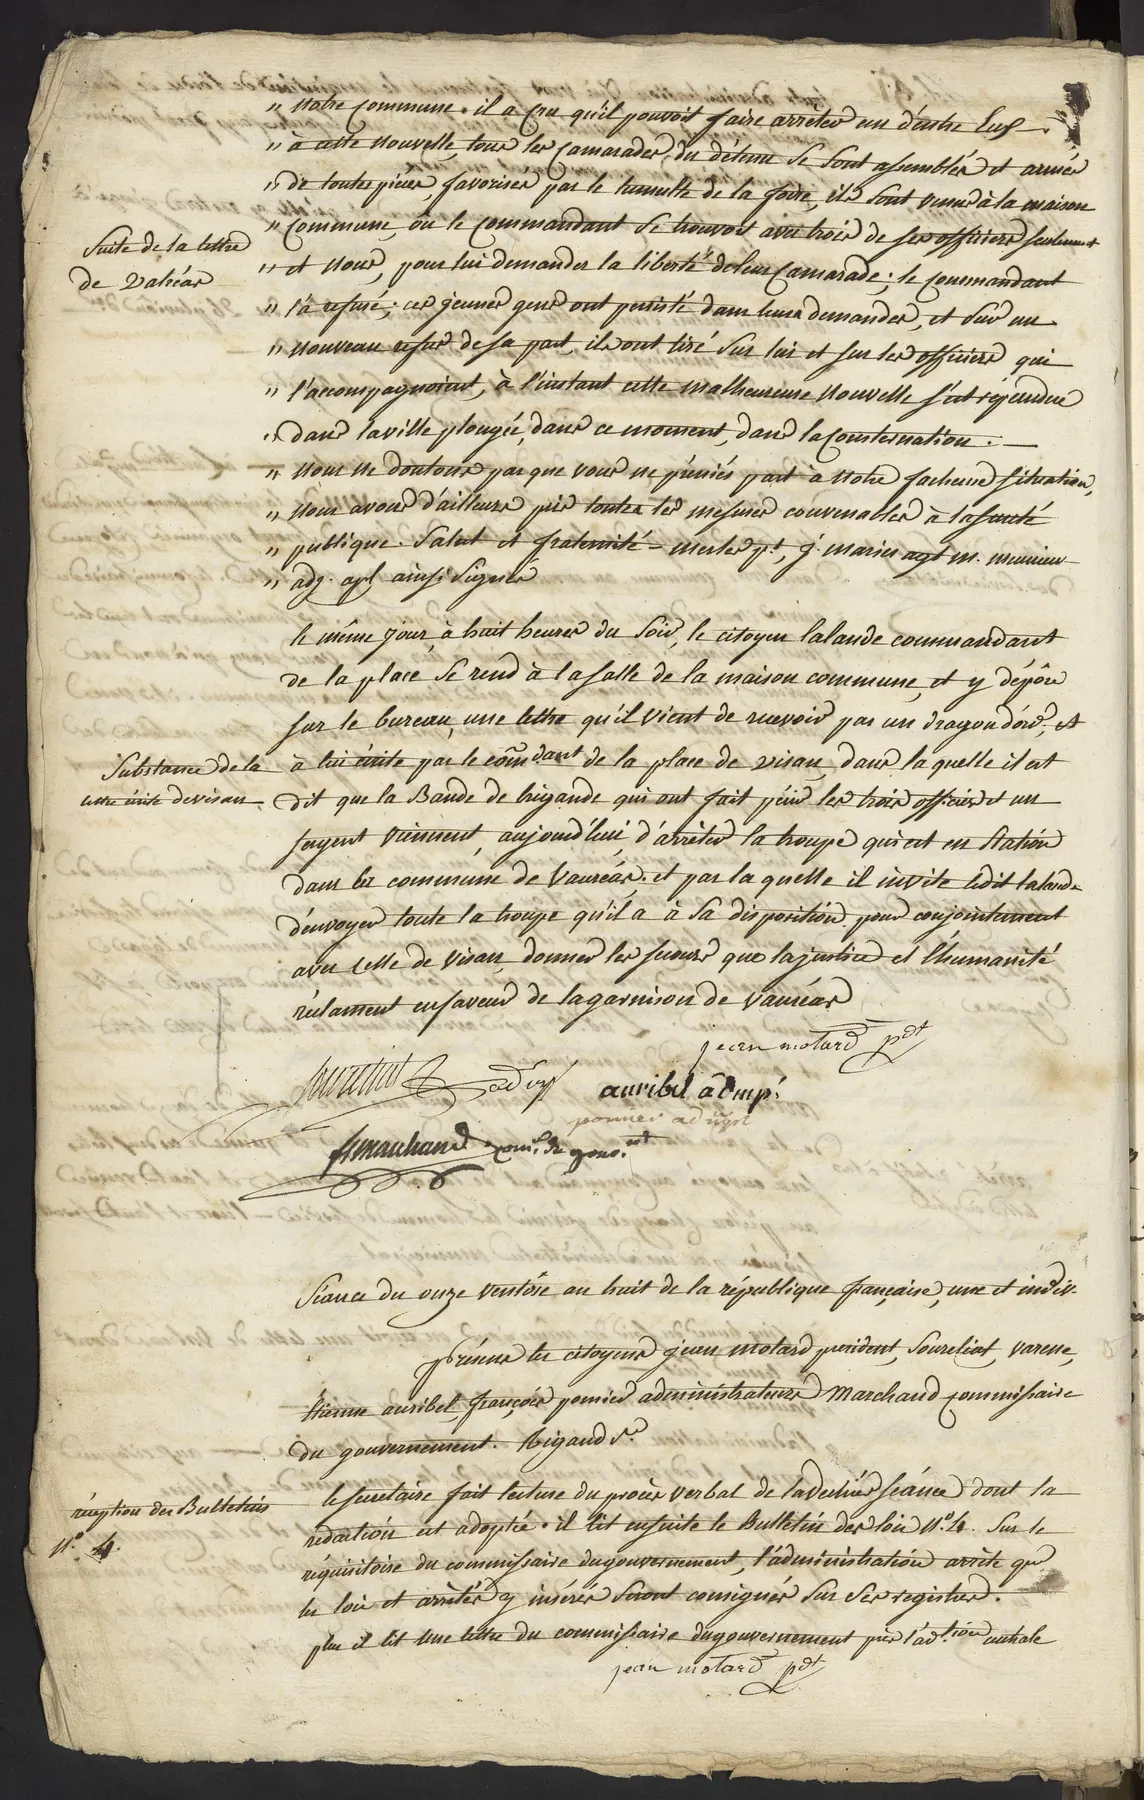 " notre commune. il a cru qu'il pouvoit faire arrêter un d'entre Eux.
" à cette nouvelle, tous les camarades du détenu se sont assemblés et armés
" de toutes pièces, favorisés par le tumulte de la foire, ils sont venus à la maison
" commune, où le commandant se trouvoit avec trois de ses officiers seulement
Suite de la lettre
de Valréas
" et nous, pour lui demander la liberté de leur camarade; le commandant
" l'a refusé; ces jeunes gens ont persisté dans leurs demandes, et sur un
" nouveau refus de sa part, ils ont tiré sur lui et sur les officiers qui
" l'accompagnoient, à l'instant cette malheureuse nouvelle s'est répendue
" dans la ville plongée, dans ce moment, dans la consternation. —
" nous ne doutons pas que vous ne preniés part à notre facheuse situation,
" nous avons d'ailleurs pris toutes les mesures convenables à la sureté
" publique. Salut et fraternité - merles pt, j. marius agt m. meunier
" adj. apl ainsi Signés
le même jour, à huit heures du soir, le citoyen lalande commandant
de la place se rend à la salle de la maison commune, et y dépose
sur le bureau, une lettre qu'il vient de recevoir par un dragon d'ord.ce, et
Substance de la
lettre écrite de visan
à lui écrite par le com̃dant de la place de visan, dans la quelle il est
dit que la Bande de brigands qui ont fait périr les trois officiers et un
sergent viennent, aujourd'hui, d'arrêter la troupe qui est en station
dans la commune de Vauréas. et par la quelle il invite ledit lalande
d'envoyer toute la troupe qu'il a à sa disposition pour conjointement
avec celle de Visan, donner les secours que la justice et l'humanité
réclament en faveur de la garnison de vauréas
jean motard pdt
Soureliat adm
auribel adm
ponnier adm
fs marchand com. du gouv.nt
Séance du onze ventôse an huit de la république française, une et indiv.
Présens les citoyens jean motard president, Soureliat, varene,
Etienne auribel, françois ponnier administrateurs Marchand commissaire
du gouvernement. Rigaud S.re
réception du Bulletin
N.o 4.
le secretaire fait lecture du procès verbal de la dernière séance dont la
redaction est adoptée. il lit ensuite le Bulletin des lois N.o 4. Sur le
réquisitoire du commissaire du gouvernement, l'administration arrête que
les lois et arrêtés y insérés seront consignés sur ses registres.
plus il lit une lettre du commissaire du gouvernement près l'ad.tion centrale
jean motard pdt